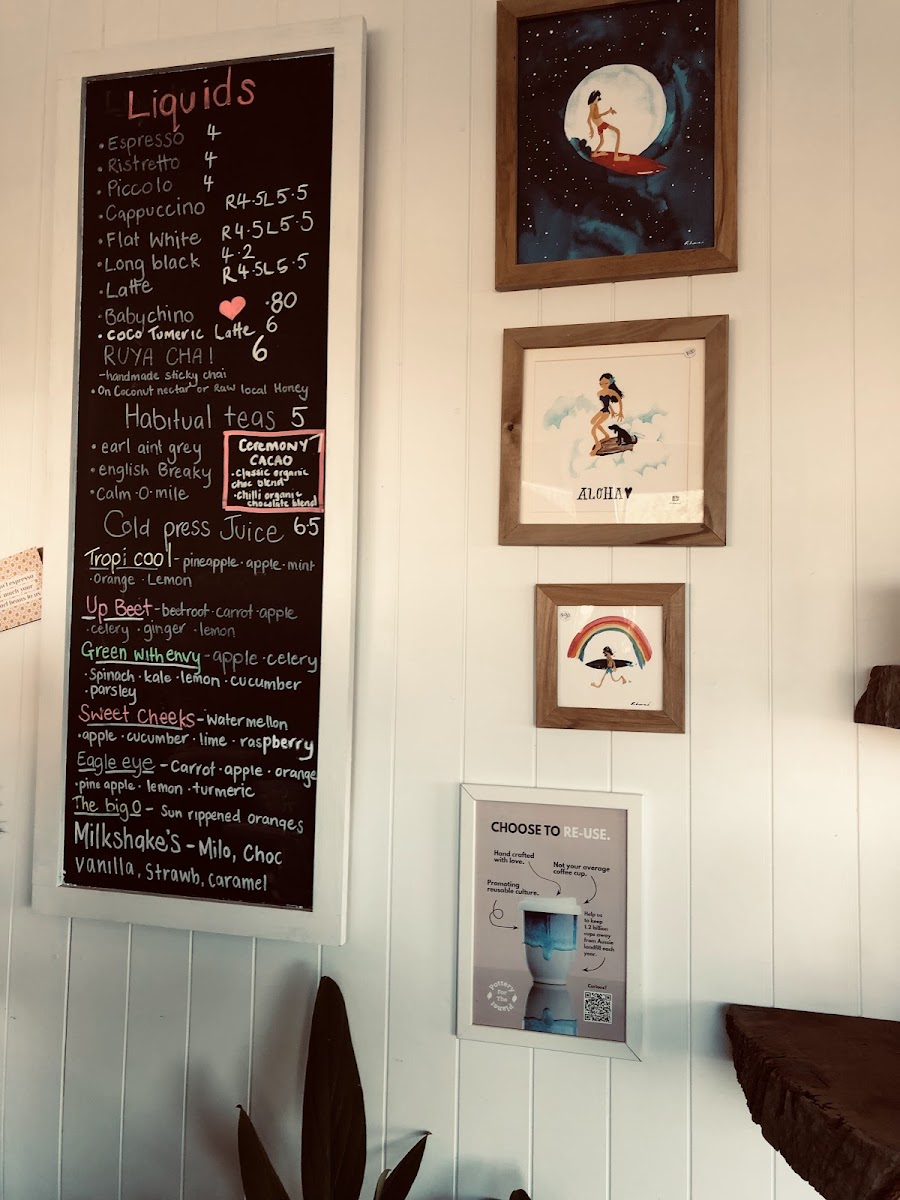 Liquids
• Espresso 4
• Ristretto 4
• Piccolo 4
• Cappuccino R4.5 L5.5
• Flat White R4.5 L5.5
• Long black 4.2
• Latte R4.5 L5.5
• Babychino .80
• COCO Tumeric Latte 6
RUYA CHAI 6
- handmade sticky chai
• On Coconut nectar or Raw local Honey
Habitual teas 5
• earl aint grey
• english Breaky
• Calm-O-mile
CEREMONY 7
CACAO
• Classic organic
choc blend
• Chilli organic
chocolate blend
Cold press Juice 6.5
Tropi cool - pineapple • apple • mint
• Orange • Lemon
Up Beet - beetroot • carrot • apple
• celery • ginger • lemon
Green with envy - apple • celery
• Spinach • kale • lemon • cucumber
• parsley
Sweet Cheeks - watermellon
• apple • cucumber • lime • raspberry
Eagle eye - Carrot • apple • orange
• pine apple • lemon • turmeric
The big O - Sun rippened oranges
Milkshake's - Milo, Choc
vanilla, Strawb, caramel
ALOHA
CHOOSE TO RE-USE.
Hand crafted
with love.
Not your average
coffee cup.
Promoting
reusable culture.
Help us
to keep
1.2 billion
cups away
from Aussie
landfill each
year.
Curious?
Pottery
For The